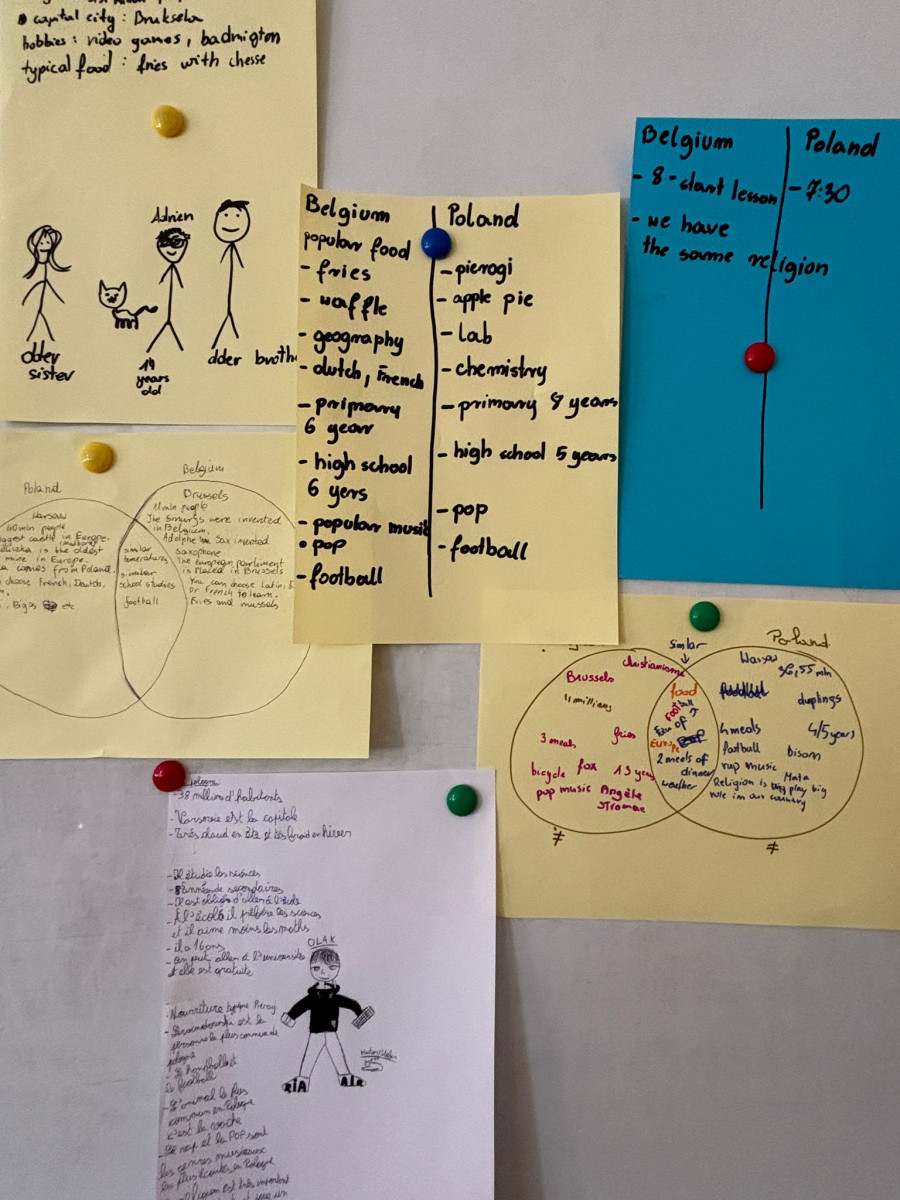 capital city : Bruksela
hobbies : video games, badmigton
typical food : fries with chesse
Adrien
older
sister
14
years
old
older broth
Belgium
popular food
- fries
- waffle
- geography
- dutch, French
- primary
6 year
- high school
6 yers
- popular music
• pop
- football
Poland
- pierogi
- apple pie
- lab
- chemistry
- primary 8 years
- high school 5 years
- pop
- football
Belgium
- 8 - start lesson
- we have
the same religion
Poland
- 7:30
Poland
Warsaw
people
castle in Europe.
is the oldest
mine in Europe.
comes from Poland.
choose French, Deutch,
Bigos etc
similar
temperatures
similar
school studies
football
Belgium
Brussels
11 mln people
The Smurfs were invented
in Belgium.
Adolphe Sax invented
saxophone
The european parliament
is placed in Brussels
You can choose Latin,
or French to learn.
Fries and mussels
similar
↓
christianisme
Brussels
11 millions
3 meals
fries
bicycle fox 13 years
pop music Angèle
Stromae
≠
food
football
Fan of
Europe
2 meals of
dinner
weather
Poland
Warsaw
36,55 mln
duplings
4 meals
4/5 years
football
Bison
rap music
Mata
Religion is play big
role in our country
≠
- 38 millions d'habitants
- Varsovie est la capitale
- Très chaud en été et très froid en hiver
- Il étudie les sciences
- 8 années de secondaires
- Il est obligé d'aller à l'école
- À l'école il préfère les sciences
et il aime moins les maths
- il a 16 ans
- on peut aller à l'université
et elle est gratuite
- Nourriture typique Pierogi
- est la
personne la plus connue de
pologne
- Le handball et
le football
- L'animal le plus
commun en Pologne
c'est la vache
- Le rap et la POP sont
les genres musicaux
les plus écoutés en Pologne
OLAK